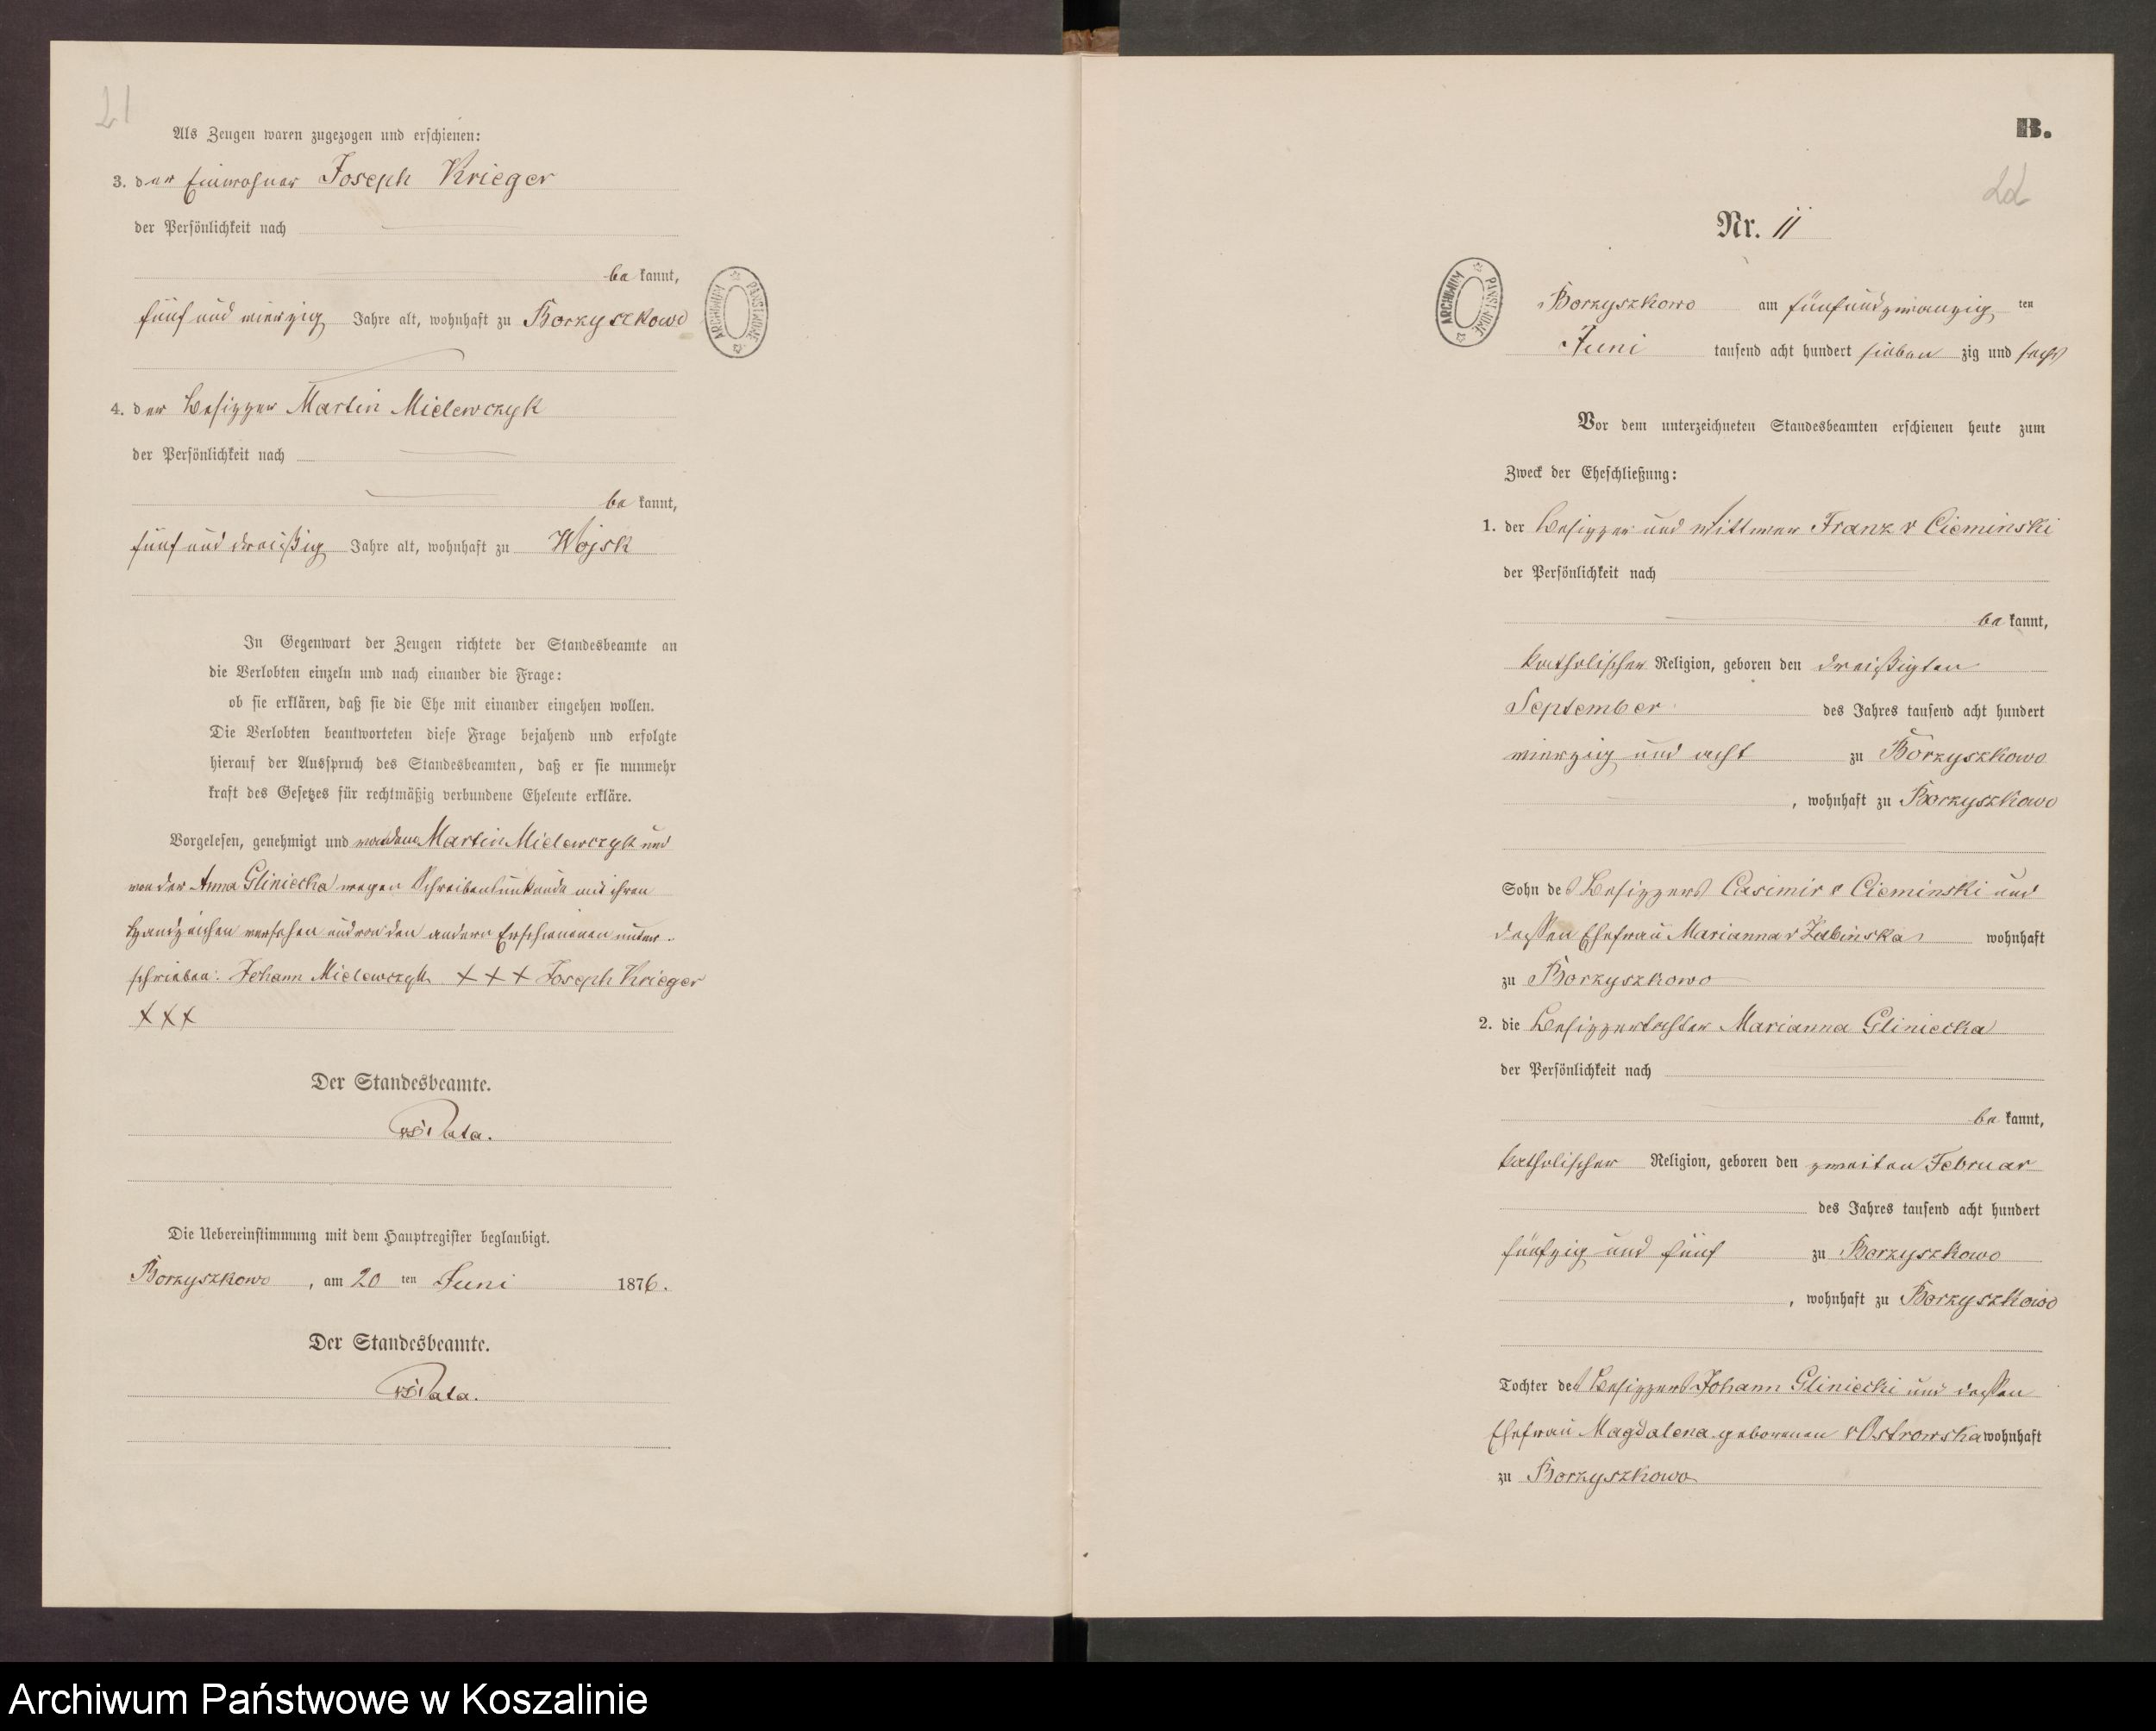 21
Als Zeugen waren zugezogen und erschienen:
3. der Einwohner Joseph Krieger
der Persönlichkeit nach
be kannt,
fünf und vierzig Jahre alt, wohnhaft zu Borzyszkowo
4. der Besitzer Martin Mielewczyk
der Persönlichkeit nach
be kannt,
fünf und dreißig Jahre alt, wohnhaft zu Wojsk
In Gegenwart der Zeugen richtete der Standesbeamte an
die Verlobten einzeln und nach einander die Frage:
ob sie erklären, daß sie die Ehe mit einander eingehen wollen.
Die Verlobten beantworteten diese Frage bejahend und erfolgte
hierauf der Ausspruch des Standesbeamten, daß er sie nunmehr
kraft des Gesetzes für rechtmäßig verbundene Eheleute erkläre.
Vorgelesen, genehmigt und von dem Martin Mielewczyk und
von der Anna Gliniecka wegen Schreibensunkunde mit ihren
Handzeichen versehen und von den andern Erschienenen unter-
schrieben: Johann Mielewczyk + + + Joseph Krieger
+ + +
Der Standesbeamte.
Die Uebereinstimmung mit dem Hauptregister beglaubigt.
Borzyszkowo, am 20 ten Juni 1876.
Der Standesbeamte.
ARCHIWUM PAŃSTWOWE
B.
22
Nr. 11
ARCHIWUM PAŃSTWOWE
Borzyszkowo am fünfundzwanzig ten
Juni tausend acht hundert sieben zig und sechs
Vor dem unterzeichneten Standesbeamten erschienen heute zum
Zweck der Eheschließung:
1. der Besitzer und Wittwer Franz v Cieminski
der Persönlichkeit nach
be kannt,
katholischer Religion, geboren den dreißigten
September des Jahres tausend acht hundert
vierzig und acht zu Borzyszkowo
, wohnhaft zu Borzyszkowo
Sohn des Besitzers Casimir v Cieminski und
dessen Ehefrau Marianna v Zabinska wohnhaft
zu Borzyszkowo
2. die Besitzertochter Marianna Gliniecka
der Persönlichkeit nach
be kannt,
katholischer Religion, geboren den zweiten Februar
des Jahres tausend acht hundert
fünfzig und fünf zu Borzyszkowo
, wohnhaft zu Borzyszkowo
Tochter des Besitzers Johann Gliniecki und dessen
Ehefrau Magdalena geborenen v Ostrowska wohnhaft
zu Borzyszkowo
Archiwum Państwowe w Koszalinie